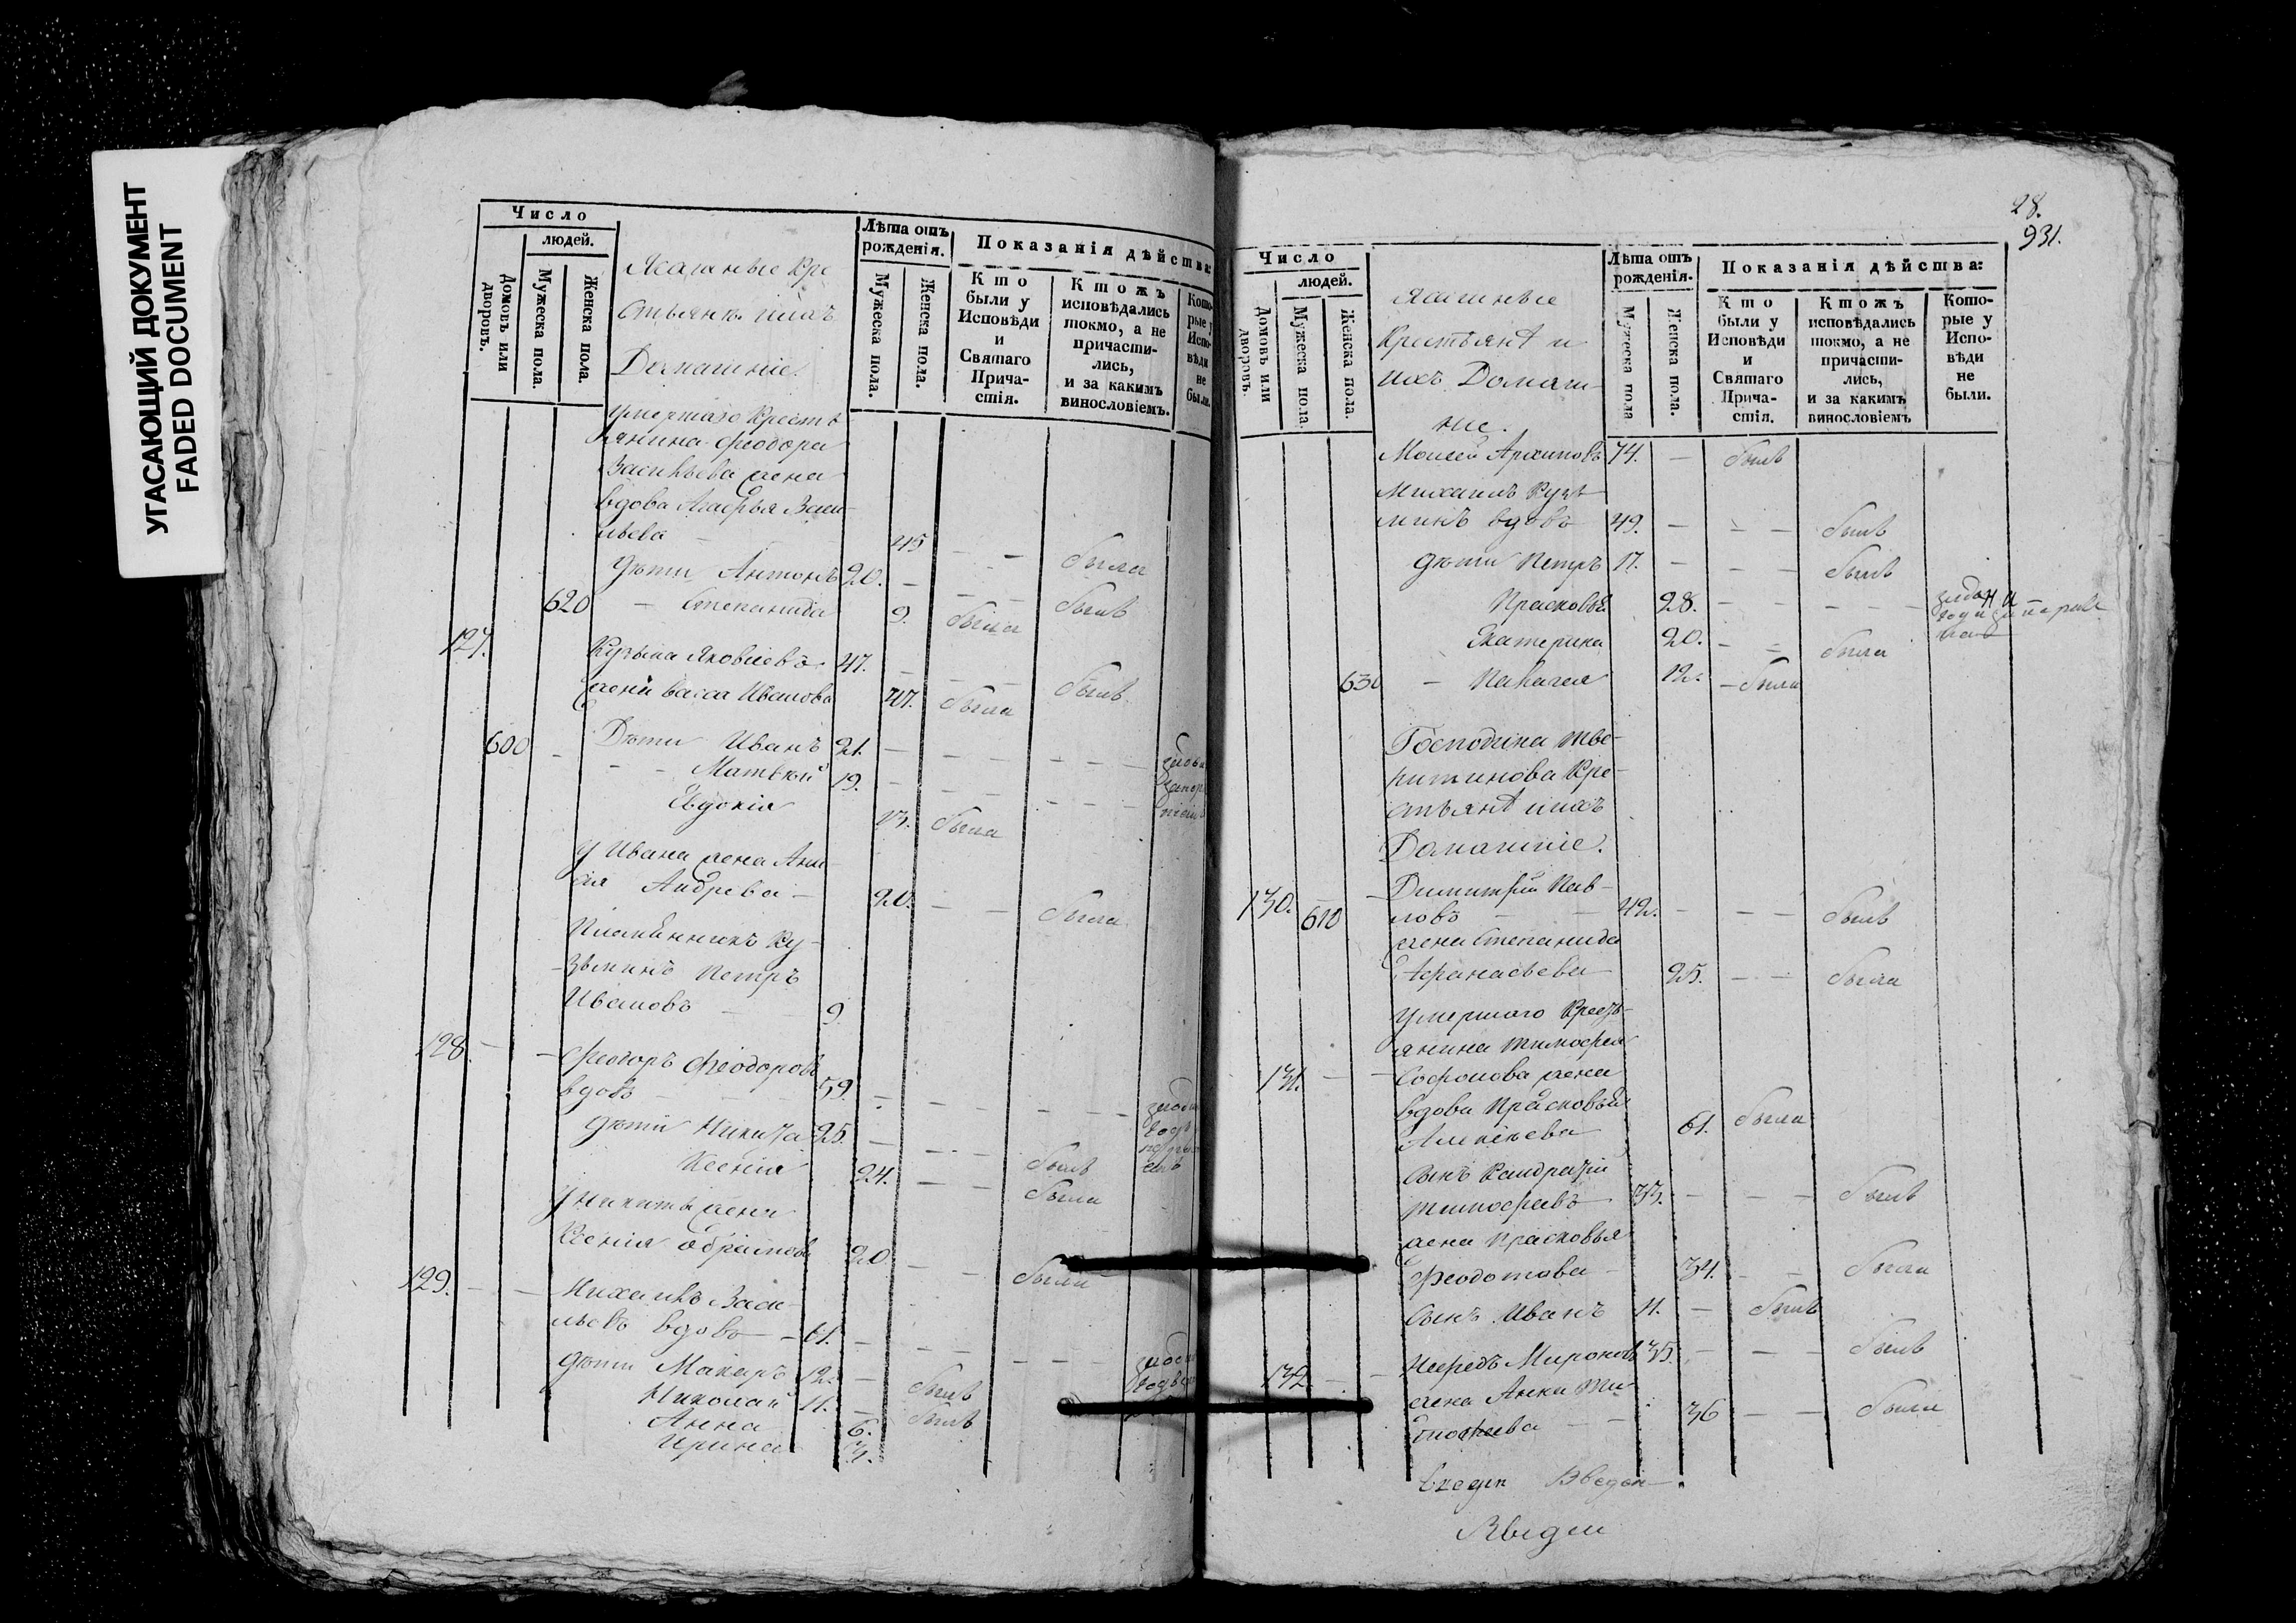 УГАСАЮЩИЙ ДОКУМЕНТ
FADED DOCUMENT
Число
людей.
Домовъ или дворовъ.
Мужеска пола.
Женска пола.
Ясашные Кре
стьяне ихъ
Домашніе.
Лѣта отъ рожденія.
Мужеска пола.
Женска пола.
Показанія дѣйства:
Кто были у Исповѣди и Святаго Причастія.
Ктожъ исповѣдались токмо, а не причастились, и за какимъ винословіемъ.
Которые у Исповѣди не были.
Умершаго Кресть
янина Феодора
Васильева жена
вдова Агафья Васи-
льева 45 была
дѣти Антонъ 20. былъ
620 Степанида 9. была
127. Кузьма Яковлевъ 47. былъ
жена Васса Иванова 47. была
600 Дѣти Иванъ 21.
Матвѣй 19.
Евдокія 13. была
У Ивана жена Ани
сія Андрева 20. была
Племянникъ Ку-
зьминъ Петръ
Ивановъ 9
128. Феодоръ Феодоровъ
вдовъ 59
дѣти Никита 25. былъ
Ксенія 24. была
У Никиты жена
Ксенія 20 была
129. Михаилъ Васи
льевъ вдовъ 61.
дѣти Макаръ 12. былъ
Николай 11. былъ
Анна 6.
Ирина 3.
28.
931.
Число
людей.
Домовъ или дворовъ.
Мужеска пола.
Женска пола.
Ясашные
Крестьянѣ и
ихъ Домаш-
ніе.
Лѣта отъ рожденія.
Мужеска пола
Женска пола.
Показанія дѣйства:
Кто были у Исповѣди и Святаго Причастія.
Ктожъ исповѣдались токмо, а не причастились, и за какимъ винословіемъ
Которые у Исповѣди не были.
Моисей Архиповъ 74. былъ
Михаилъ Кузь
минъ вдовъ 49. былъ
дѣти Петръ 17. былъ
Прасковья 28.
Екатерина 20. была
630 Палагея 12. была
Господина Тве-
ритинова Кре-
стьянѣ ихъ
Домашніе.
130. 610 Димитрій Пав-
ловъ 42. былъ
жена Степанида
Афанасьева 25. была
Умершаго Кресть-
янина Тимофея
131. Софонова жена
вдова Прасковья
Алексѣева 61. была
Сынъ Кандратій
Тимофѣевъ 33. былъ
жена Прасковья
Феодотова 34. была
Сынъ Иванъ 11. былъ
132. Нефедъ Мироновъ 35. былъ
жена Анна Ти
мофѣева 36 была